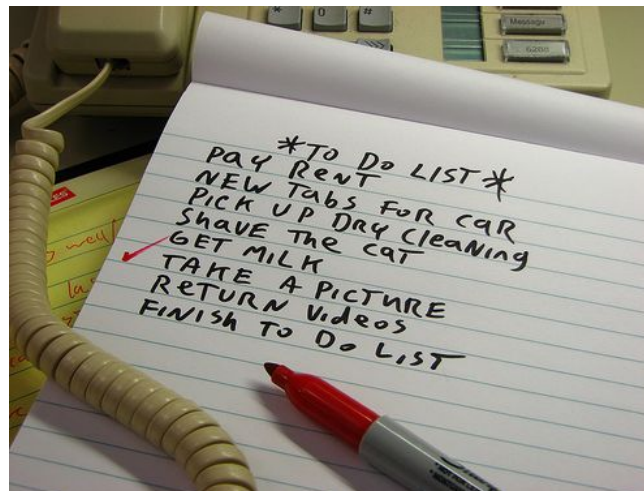 *
0
#
Message
6288
*TO DO LIST*
PAY RENT
NEW TABS FOR CAR
PICK UP DRY CLEANING
SHAVE THE CAT
GET MILK
TAKE A PICTURE
RETURN VIDEOS
FINISH TO DO LIST
well